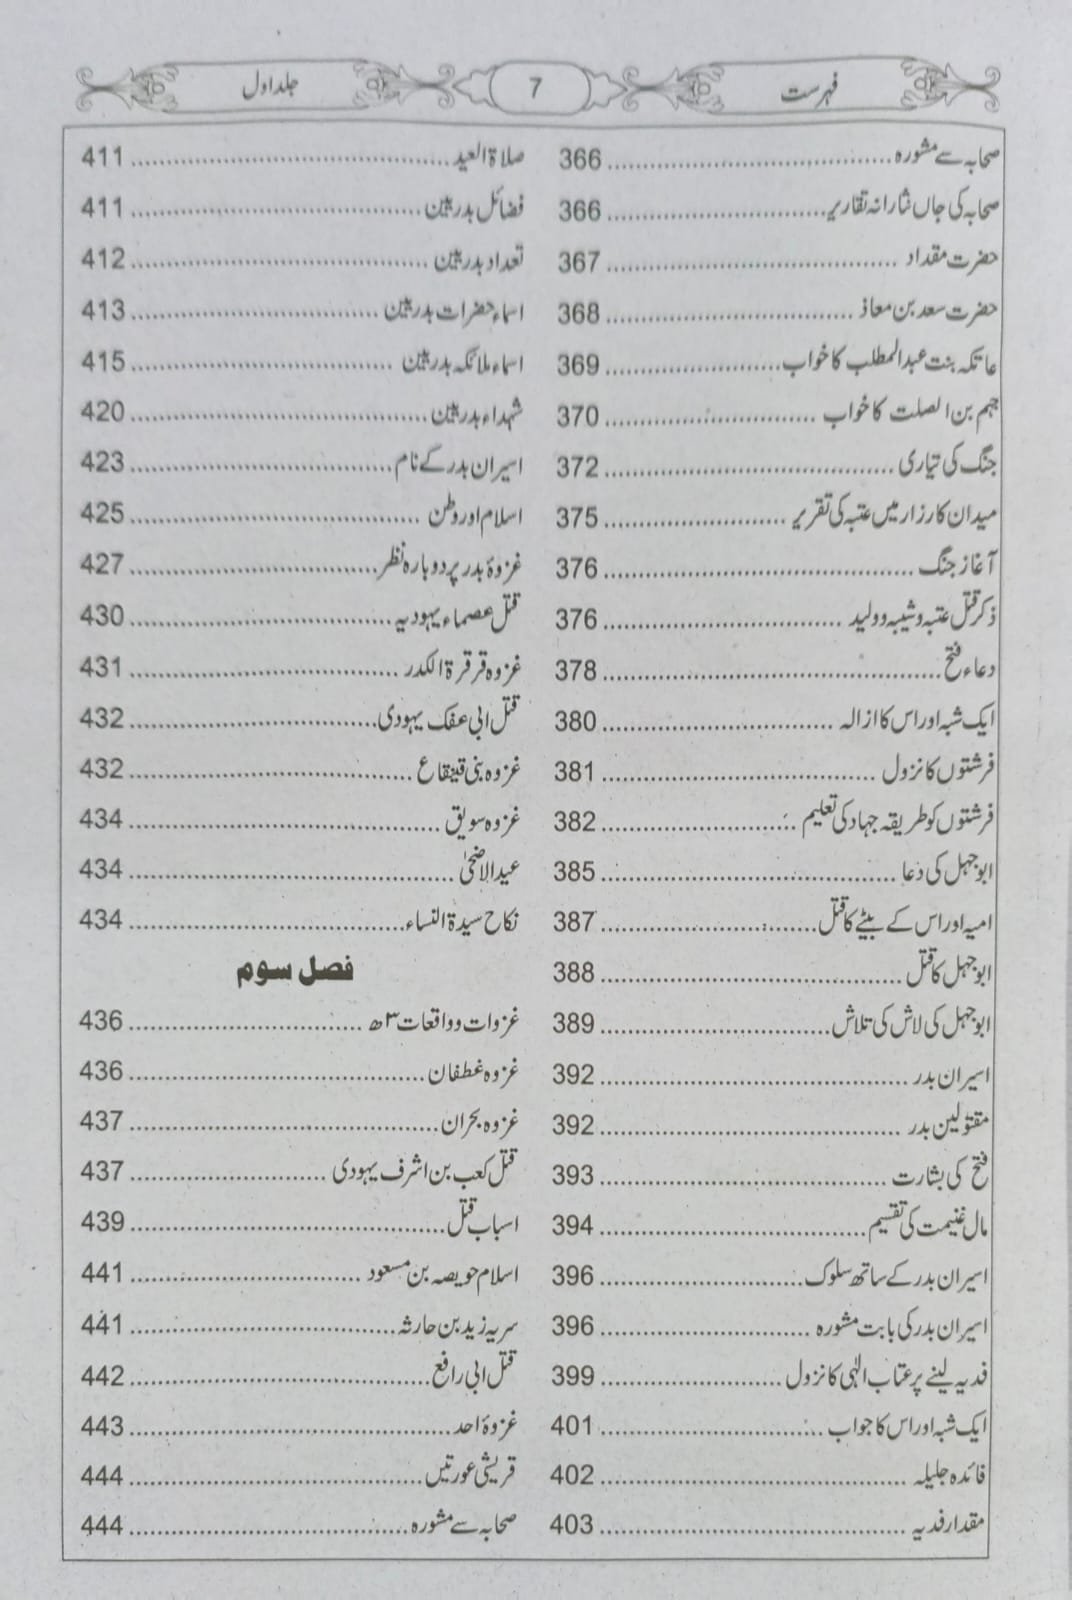 فہرست 7 جلد اول
صحابہ سے مشورہ ........ 366
صحابہ کی جاں نثارانہ تقاریر ........ 366
حضرت مقداد ........ 367
حضرت سعد بن معاذ ........ 368
عاتکہ بنت عبدالمطلب کا خواب ........ 369
جہم بن الصلت کا خواب ........ 370
جنگ کی تیاری ........ 372
میدان کارزار میں عتبہ کی تقریر ........ 375
آغاز جنگ ........ 376
ذکر قتل عتبہ و شیبہ و ولید ........ 376
دعاء فتح ........ 378
ایک شبہ اور اس کا ازالہ ........ 380
فرشتوں کا نزول ........ 381
فرشتوں کو طریقہ جہاد کی تعلیم ........ 382
ابو جہل کی دعا ........ 385
امیہ اور اس کے بیٹے کا قتل ........ 387
ابو جہل کا قتل ........ 388
ابو جہل کی لاش کی تلاش ........ 389
اسیران بدر ........ 392
مقتولین بدر ........ 392
فتح کی بشارت ........ 393
مال غنیمت کی تقسیم ........ 394
اسیران بدر کے ساتھ سلوک ........ 396
اسیران بدر کی بابت مشورہ ........ 396
فدیہ لینے پر عتاب الٰہی کا نزول ........ 399
ایک شبہ اور اس کا جواب ........ 401
فائدہ جلیلہ ........ 402
مقدار فدیہ ........ 403
صلاۃ العید ........ 411
فضائل بدریین ........ 411
تعداد بدریین ........ 412
اسماء حضرات بدریین ........ 413
اسماء ملائکہ بدریین ........ 415
شہداء بدریین ........ 420
اسیران بدر کے نام ........ 423
اسلام اور وطن ........ 425
غزوۂ بدر پر دوبارہ نظر ........ 427
قتل عصماء یہودیہ ........ 430
غزوہ قرقرۃ الکدر ........ 431
قتل ابی عفک یہودی ........ 432
غزوہ بنی قینقاع ........ 432
غزوہ سویق ........ 434
عید الاضحیٰ ........ 434
نکاح سیدۃ النساء ........ 434
فصل سوم
غزوات و واقعات ۳ھ ........ 436
غزوہ غطفان ........ 436
غزوہ بحران ........ 437
قتل کعب بن اشرف یہودی ........ 437
اسباب قتل ........ 439
اسلام حویصہ بن مسعود ........ 441
سریہ زید بن حارثہ ........ 441
قتل ابی رافع ........ 442
غزوۂ احد ........ 443
قریشی عورتیں ........ 444
صحابہ سے مشورہ ........ 444